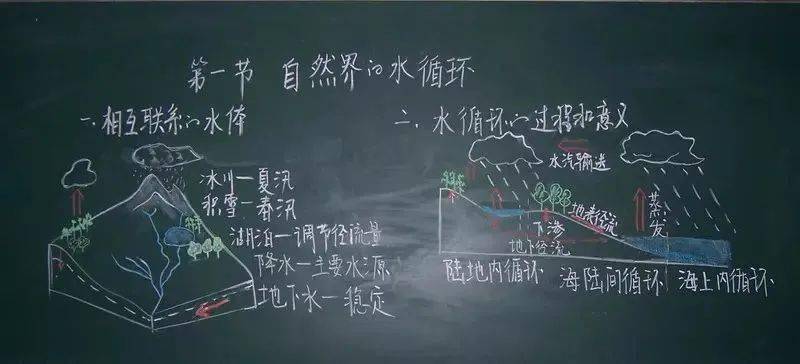 第一节 自然界的水循环
一、相互联系的水体
冰川—夏汛
积雪—春汛
湖泊—调节径流量
降水—主要水源
地下水—稳定
二、水循环的过程和意义
水汽输送
地表径流
下渗
地下径流
蒸发
陆地内循环
海陆间循环
海上内循环